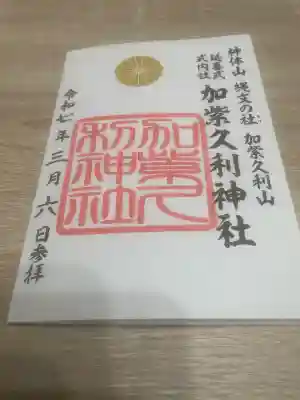 神体山 縄文の社 加紫久利山
延喜式
式内社
加紫久利神社
加紫久
利神社
令和七年 三月 六日参拝